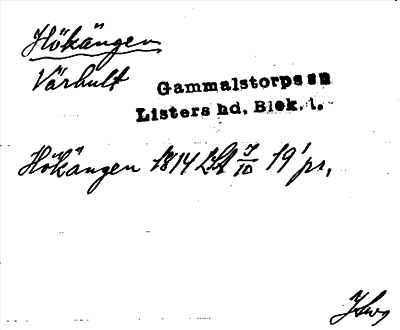 Hökängen
Värhult
Gammalstorps sn
Listers hd. Blek. l.
Hökängen 1814 LSA 7/10 19' pr.